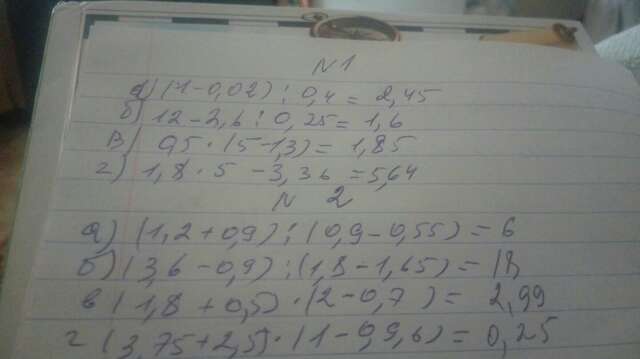 N 1
а) (1-0,02) : 0,4 = 2,45
б) 12-2,6 : 0,25 = 1,6
в) 0,5 · (5-1,3) = 1,85
г) 1,8 · 5 - 3,36 = 5,64
N 2
а) (1,2+0,9) : (0,9-0,55) = 6
б) (3,6-0,9) : (1,8-1,65) = 18
в (1,8+0,5) · (2-0,7) = 2,99
г (3,75+2,5) · (1-0,9,6) = 0,25